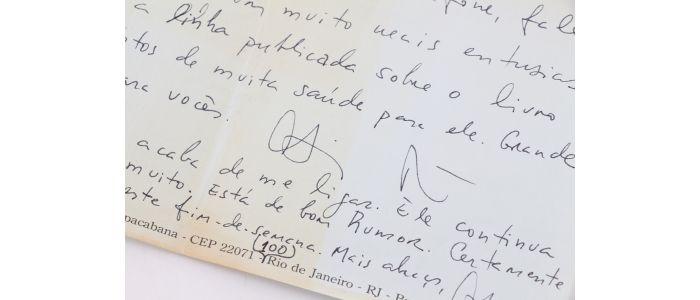 fone, fale
m muito mais entusias
a linha publicada sobre o livro
tos de muita saúde para ele. Grande
ara vocês.
acaba de me ligar. Ele continua
muito. Está de bom humor. Certamente
ste fim-de-semana. Mais abraços,
pacabana - CEP 22071 (100) Rio de Janeiro - RJ - B